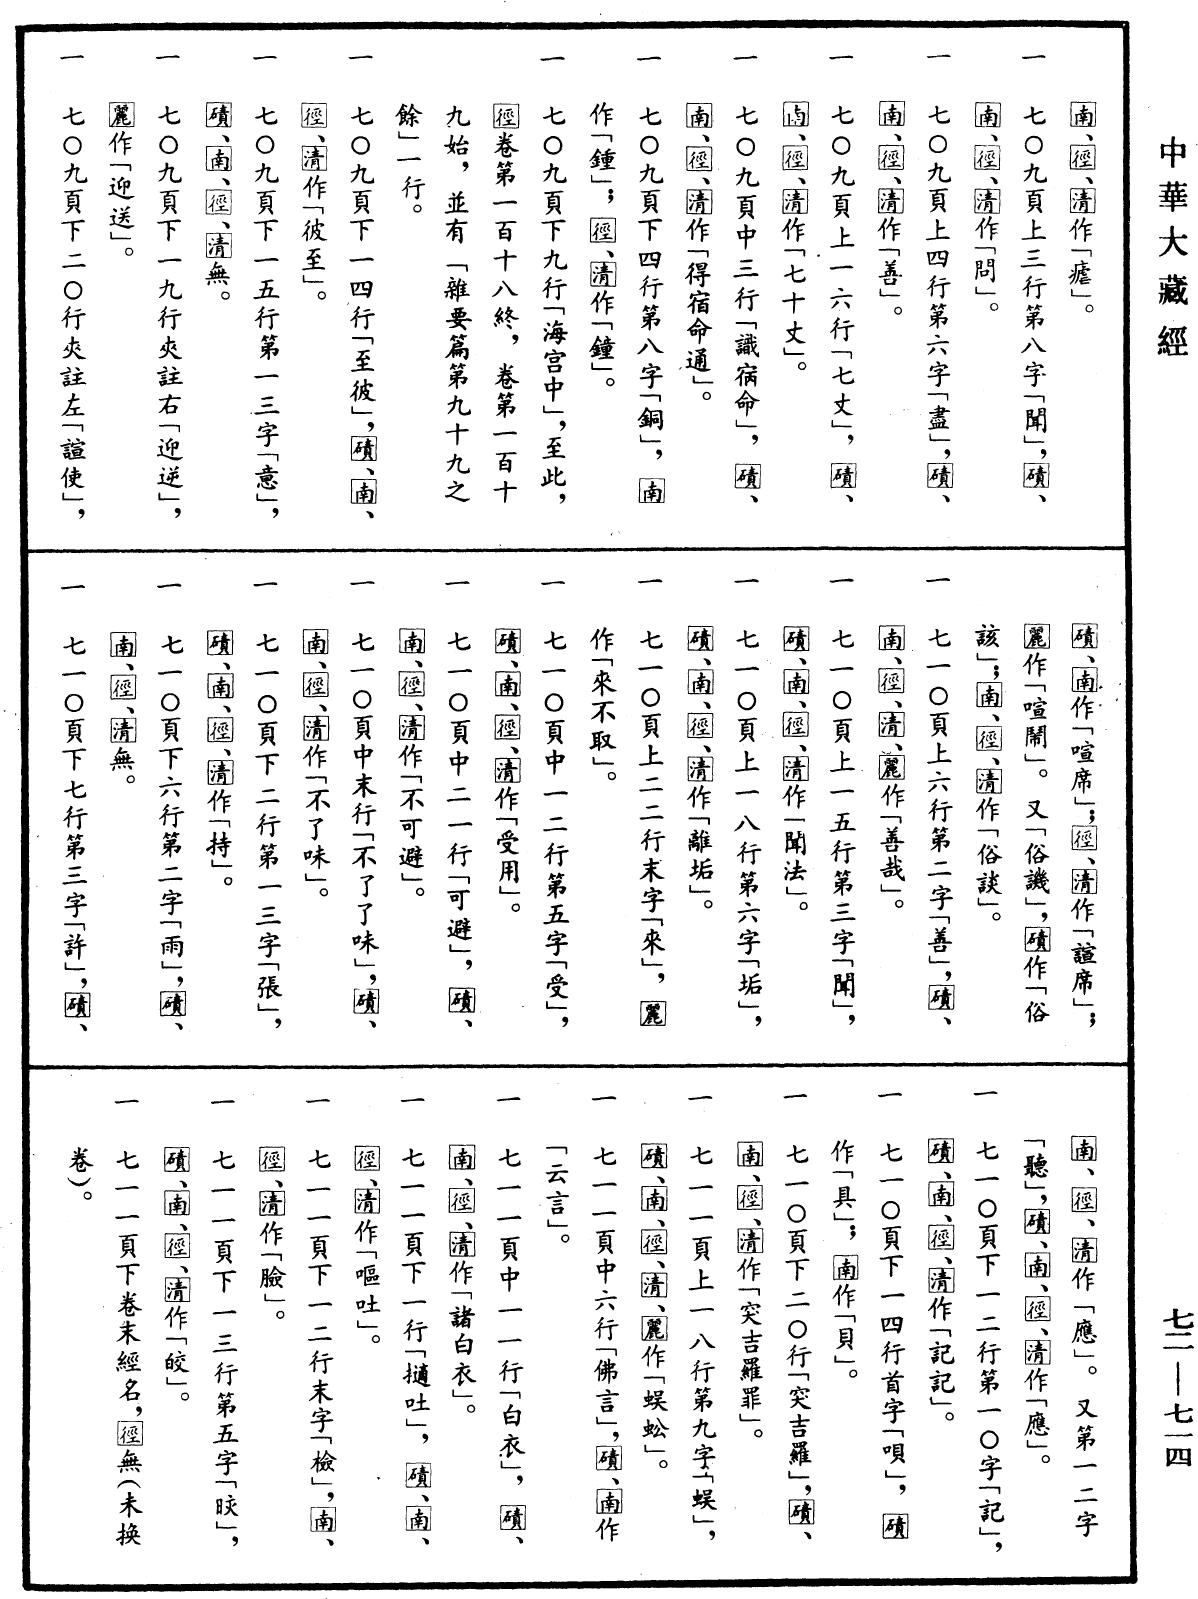 中華大藏經
南、徑、清作「瘧」。
一 七〇九頁上三行第八字「聞」，磧、
南、徑、清作「問」。
一 七〇九頁上四行第六字「盡」，磧、
南、徑、清作「善」。
一 七〇九頁上一六行「七丈」，磧、
南、徑、清作「七十丈」。
一 七〇九頁中三行「識宿命」，磧、
南、徑、清作「得宿命通」。
一 七〇九頁下四行第八字「銅」，南
作「鍾」；徑、清作「鐘」。
一 七〇九頁下九行「海宮中」，至此，
徑卷第一百十八終，卷第一百十
九始，並有「雜要篇第九十九之
餘」一行。
一 七〇九頁下一四行「至彼」，磧、南、
徑、清作「彼至」。
一 七〇九頁下一五行第一三字「意」，
磧、南、徑、清無。
一 七〇九頁下一九行夾註右「迎逆」，
麗作「迎送」。
一 七〇九頁下二〇行夾註左「諠使」，
磧、南作「喧席」；徑、清作「諠席」；
麗作「喧鬧」。又「俗譏」，磧作「俗
該」；南、徑、清作「俗談」。
一 七一〇頁上六行第二字「善」，磧、
南、徑、清、麗作「善哉」。
一 七一〇頁上一五行第三字「聞」，
磧、南、徑、清作「聞法」。
一 七一〇頁上一八行第六字「垢」，
磧、南、徑、清作「離垢」。
一 七一〇頁上二二行末字「來」，麗
作「來不取」。
一 七一〇頁中一二行第五字「受」，
磧、南、徑、清作「受用」。
一 七一〇頁中二一行「可避」，磧、
南、徑、清作「不可避」。
一 七一〇頁中末行「不了了味」，磧、
南、徑、清作「不了味」。
一 七一〇頁下二行第一三字「張」，
磧、南、徑、清作「持」。
一 七一〇頁下六行第二字「雨」，磧、
南、徑、清無。
一 七一〇頁下七行第三字「許」，磧、
南、徑、清作「應」。又第一二字
「聽」，磧、南、徑、清作「應」。
一 七一〇頁下一二行第一〇字「記」，
磧、南、徑、清作「記記」。
一 七一〇頁下一四行首字「唄」，磧
作「具」；南作「貝」。
一 七一〇頁下二〇行「突吉羅」，磧、
南、徑、清作「突吉羅罪」。
一 七一一頁上一八行第九字「蜈」，
磧、南、徑、清、麗作「蜈蚣」。
一 七一一頁中六行「佛言」，磧、南作
「云言」。
一 七一一頁中一一行「白衣」，磧、
南、徑、清作「諸白衣」。
一 七一一頁下一行「擿吐」，磧、南、
徑、清作「嘔吐」。
一 七一一頁下一二行末字「檢」，南、
徑、清作「臉」。
一 七一一頁下一三行第五字「晈」，
磧、南、徑、清作「皎」。
一 七一一頁下卷末經名，徑無（未換
卷）。
七二—七一四